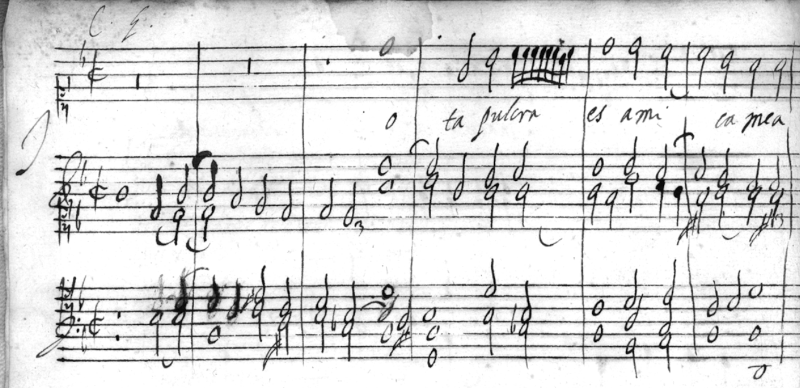 o ta pulcra es ami ca mea